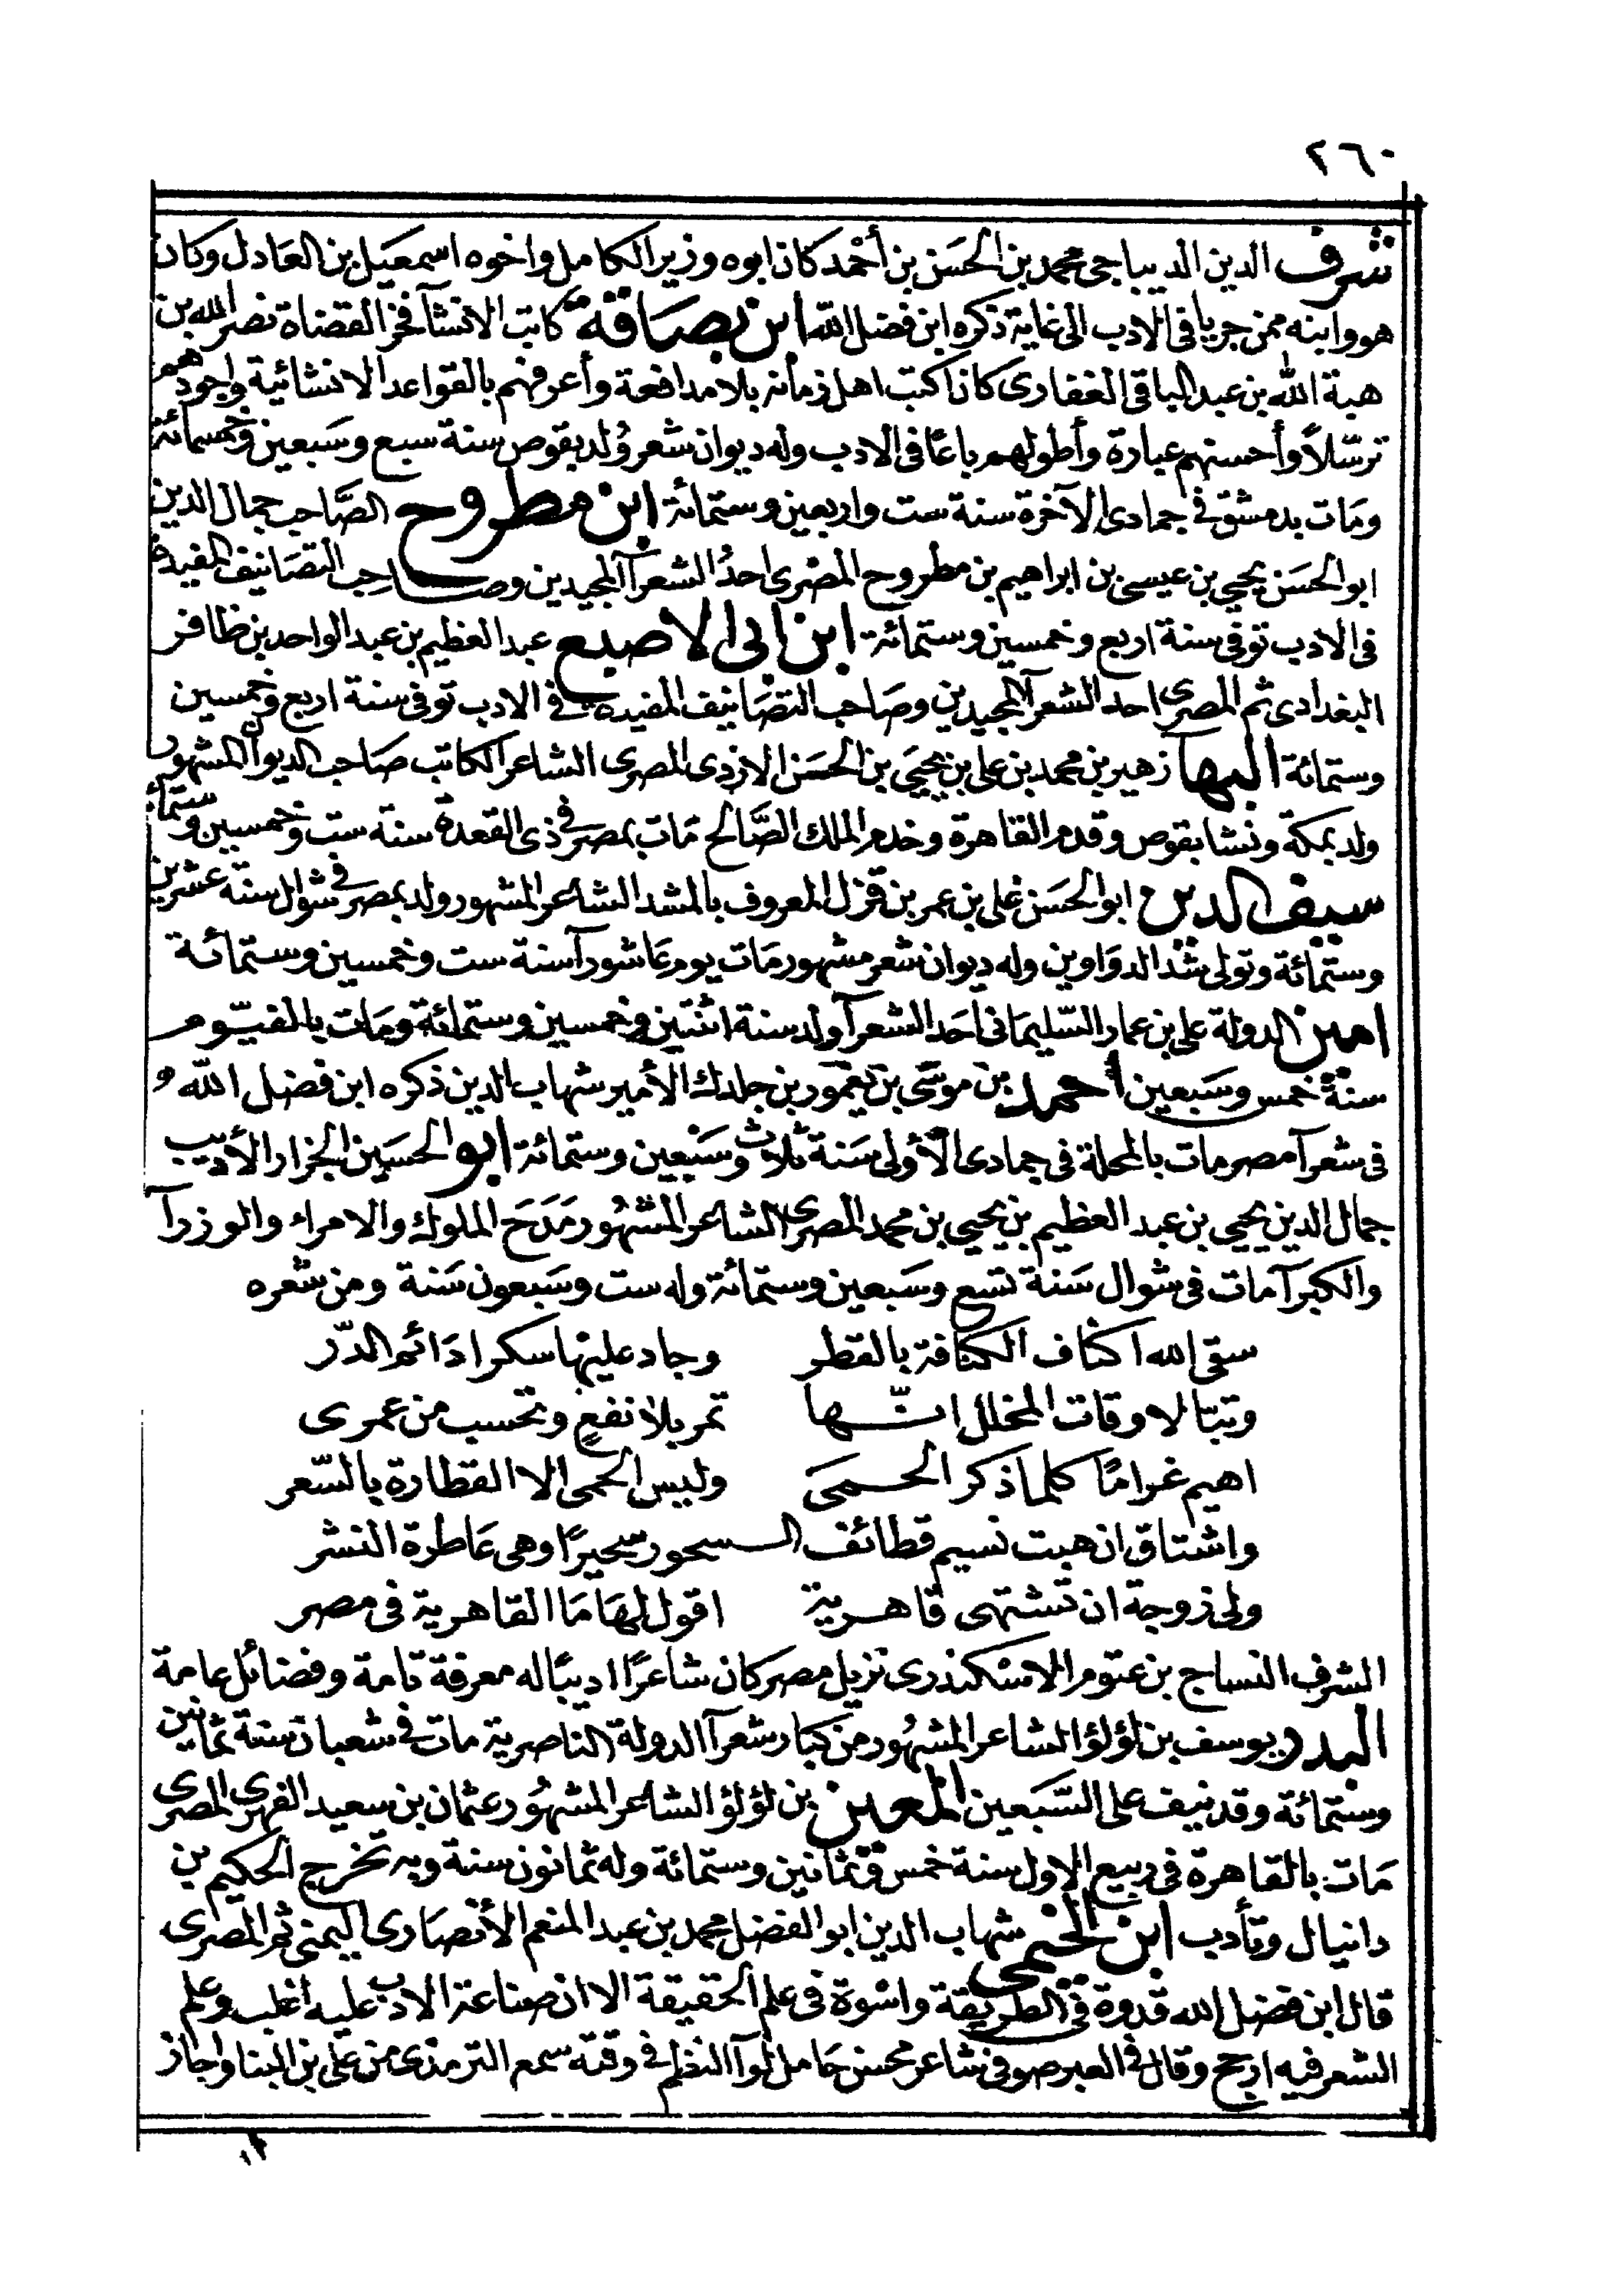 ٢٦٠
شرف الدين الديباجى محمد بن الحَسَن بن أحْمد كان ابوه وزير الكامل واخوه اسمعَيل بن العَادل وكان
هو وابنه ممن جريا فى الادب الى غاية ذكره ابن فضل الله ابن بصَاقة كاتب الانشآ فخر القضاة نصر الله بن
هبة الله بن عبد الباقى الغفارى كان اكتب اهل زمانه بلا مدافعة وأعرفهم بالقواعد الانشائية واجودهم
ترسّلاً وأحسنهم عبارة وأطولهم باعًا فى الادب وله ديوان شعر وُلد بقوص سنة سبع وسَبعين وخمسمائة
ومَات بدمشق فى جمادى الآخرة سنة ست واربعين وستمائة ابن مطروح الصَّاحب جمال الدين
ابو الحسَن يحيى بن عيسى بن ابراهيم بن مطروح المصْرى احدُ الشعرآ المجيدين وصاحِب التصَانيف المفيدة
فى الادب توفى سنة اربع وخمسين وستمائة ابن ابى الاصبع عبد العظيم بن عبد الواحد بن ظافر
البغدادى ثم المصرى احد الشعرآ المجيدين وصَاحب التصَانيف المفيده فى الادب توفى سنة اربع وخمسين
وستمائة البهآ زهير بن محمد بن على بن يحيَى بن الحسَن الازدى المصرى الشاعر الكاتب صَاحب الديوان المشهور
ولد بمكة ونشا بقوص وقدم القاهرة وخدم الملك الصَّالح مَات بمصر فى ذى القعدة سنة ست وخمسين وستمائة
سيف الدين ابو الحسَن على بن عمر بن قزل المعروف بالمشد الشاعر المشهور ولد بمصر فى شوال سنة عشرين
وستمائة وتولى شد الدوَاوين وله ديوان شعر مشهور مَات يوم عَاشورآ سنة ست وخمسين وستمائة
امين الدولة على بن عمار السّليمَانى احَد الشعرآ ولد سنة اثنتين وخمسين وستمائة ومَات بالفيّوم
سنة خمس وسَبعين أحمد بن موسَى بن يَغمور بن جلدك الأمير شهاب الدين ذكره ابن فضل الله
فى شعرآ مصر مات بالمحلة فى جمادى الأولى سَنة ثلاث وسَبْعين وستمائة ابو الحسَين الجزار الأديب
جمال الدين يحيى بن عبد العظيم بن يحيى بن محمد المصرى الشاعر المشهُور مَدَحَ الملوك والامراء والوزرآ
والكبرآ مات فى شوال سَنة تسع وسَبعين وستمائة وله ست وسَبعون سَنة ومن شعره
سقى الله اكناف الكنافة بالقطر وجاد عليها سكرا دَائم الدّر
وتبّا لاوقات المخلل انّها تمر بلا نفعٍ وتحسب من عمرى
اهيم غرامًا كلما ذكر الحمَى وليس الحمى الا القطارة بالسّعر
واشتاق ان هبت نسيم قطائف السحور سحيرًا وهى عَاطرة النشر
ولى زوجة ان تشتهى قاهرية اقول لهَا مَا القاهرية فى مصر
الشرف النساج بن عتوم الاسْكندرى نزيل مصر كان شاعرًا اديبًا له معرفة تامة وفضائل عامة
البدر يوسف بن لؤلؤ الشاعر المشهُور من كبار شعرآ الدولة الناصرية مات فى شعبان سنة ثمانين
وستمائة وقد نيف على السَّبَعين المعين بن لؤلؤ الشاعر المشهُور عثمان بن سعيد الفهرى المصرى
مَات بالقاهرة فى ربيع الاول سنة خمس وثمانين وستمائة وله ثمانون سنة وبه تخرج الحكيم بن
دانيال وتأدب ابن الخيمى شهاب الدين ابو الفضل محمد بن عبد المنعم الأنصَارى اليمنى ثم المصرى
قال ابن فضل الله قدوة فى الطريقة واسْوة فى علم الحقيقة الا ان صناعة الادب عليه اغلب وعلم
الشعر فيه ارجح وقال فى العبر صوفى شاعر محسن حَامل لوآ النظم فى وقته سمع الترمذى من على بن البنا واجاز